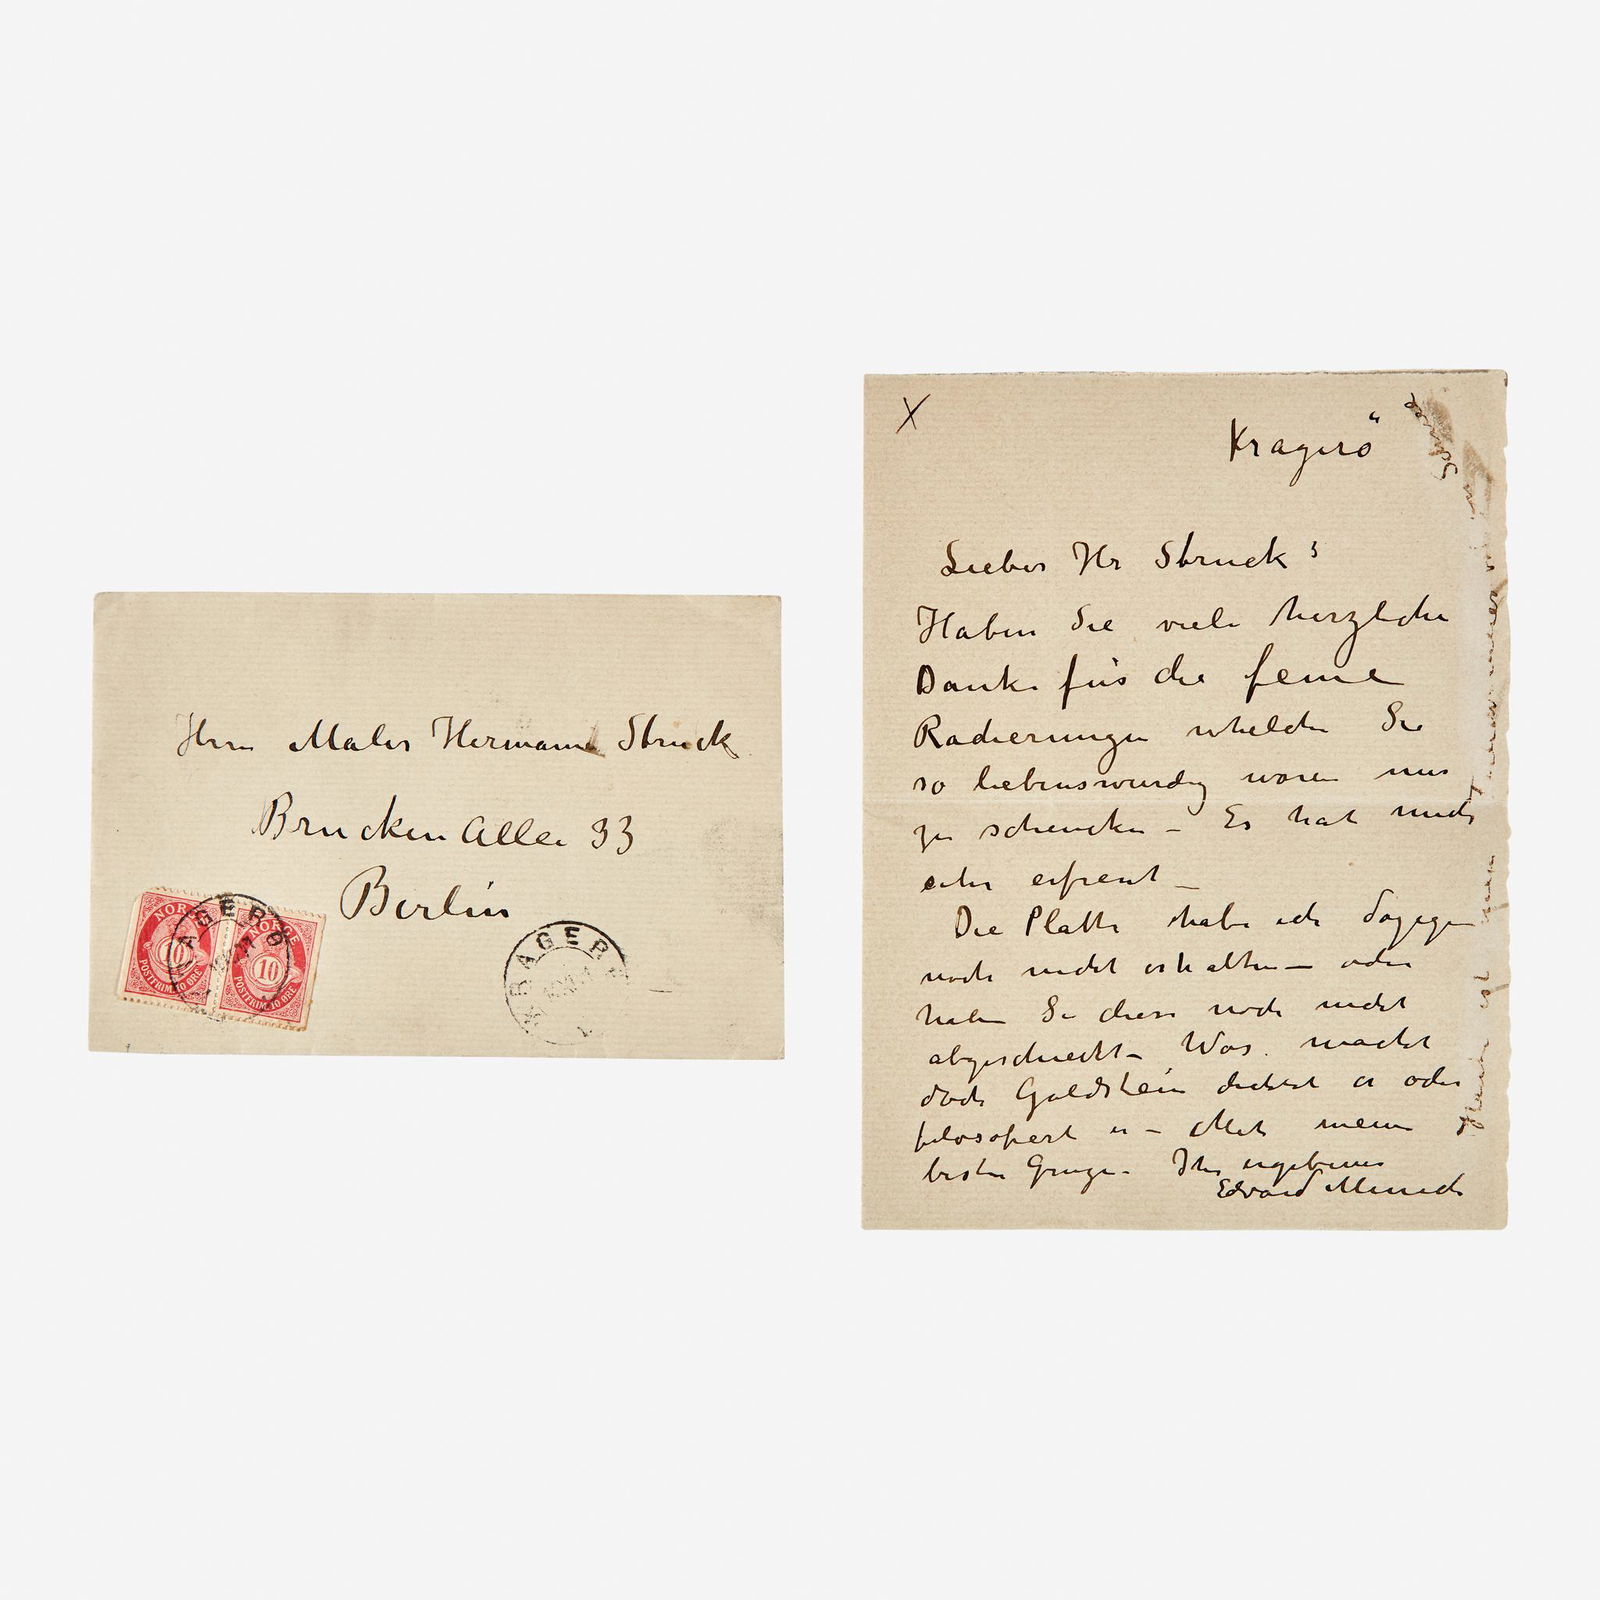 Herrn Maler Hermann Struck
Brucken Allee 33
Berlin
NORGE
10
POSTFRIM. 10 ØRE
NORGE
10
POSTFRIM. 10 ØRE
KRAGERØ
KRAGER
X
Kragerö
Lieber Hr Struck!
Haben Sie viele herzliche
Danke für die feine
Radierungen whelche Sie
so liebenswurdig waren mir
zu schencken – Es hat mich
sehr erfreut –
Die Platte habe ich dagegen
noch nicht erhalten – oder
haben Sie diese noch nicht
abgeschickt – Was macht
doch Goldstein dichtet er oder
filosofiert er – Mit meine
beste Grüze – Ihr ergebener
Edvard Munch
Heute ist mein
immer
Schnee